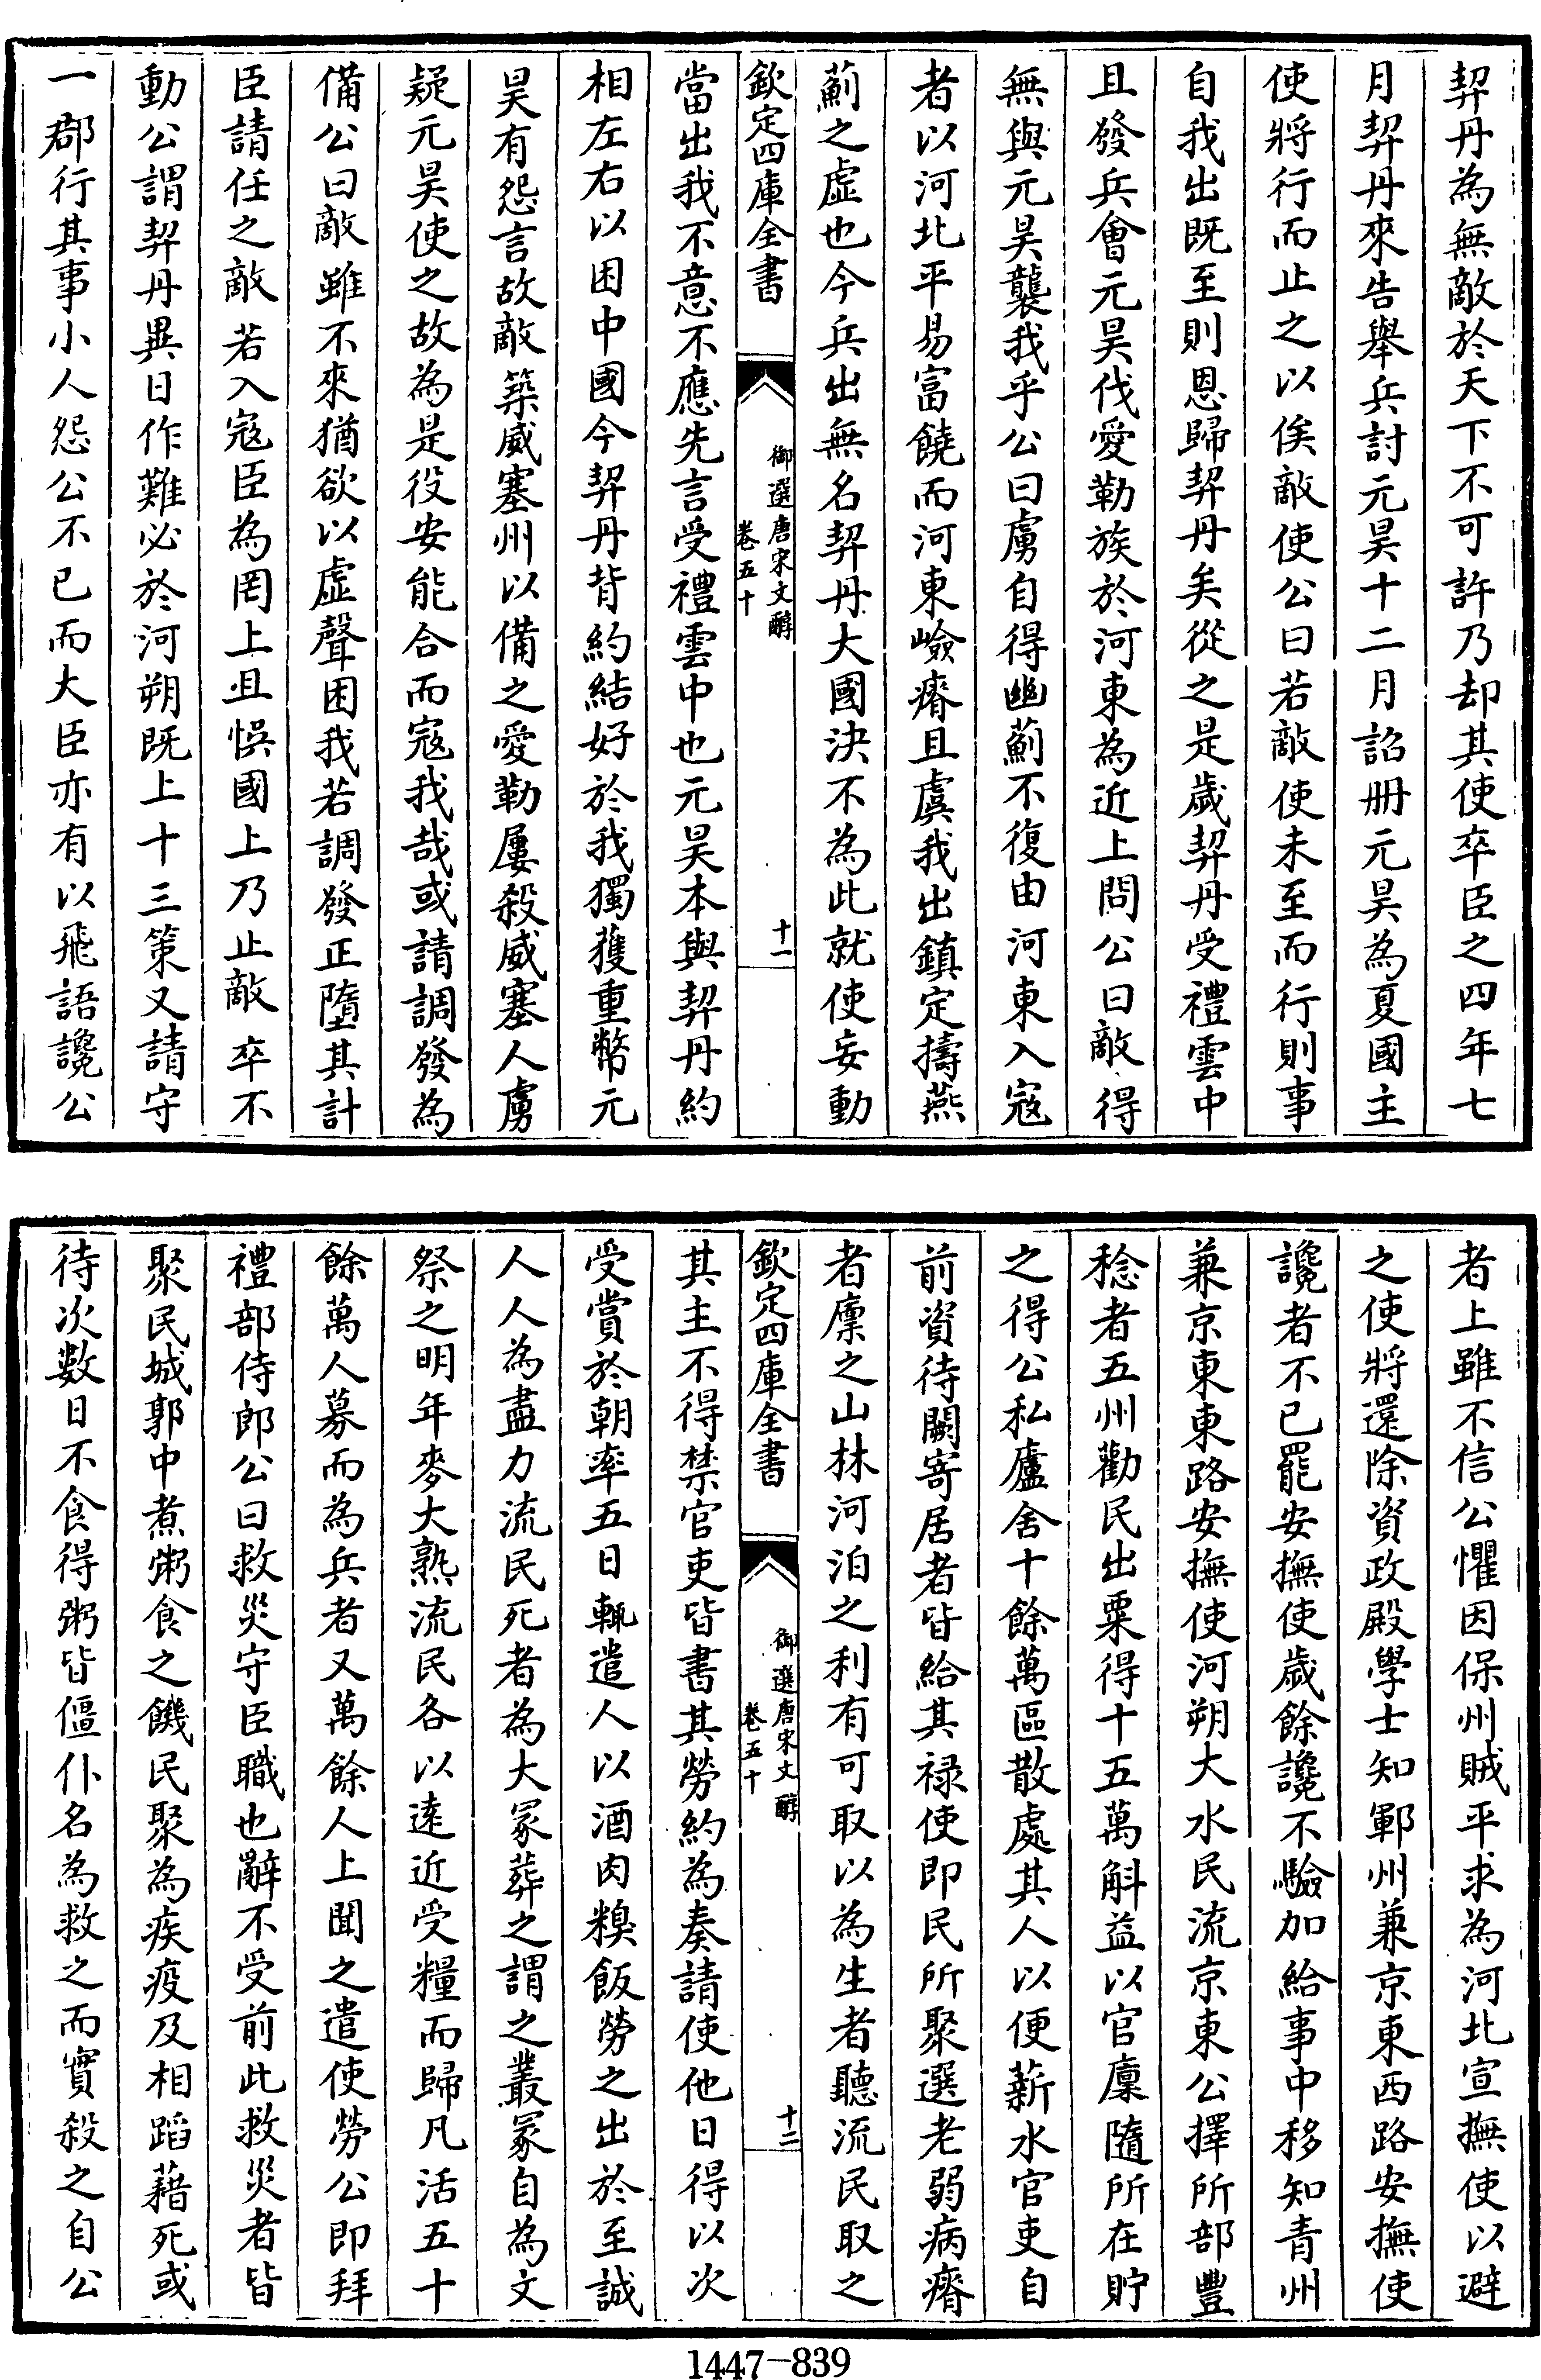 契丹為無敵於天下不可許乃却其使卒臣之四年七
月契丹來告舉兵討元昊十二月詔冊元昊為夏國主
使將行而止之以俟敵使公曰若敵使未至而行則事
自我出既至則恩歸契丹矣從之是歲契丹受禮雲中
且發兵會元昊伐愛勒族於河東為近上問公曰敵得
無與元昊襲我乎公曰虜自得幽薊不復由河東入寇
者以河北平易富饒而河東嶮瘠且虞我出鎮定擣燕
薊之虛也今兵出無名契丹大國決不為此就使妄動
欽定四庫全書
御選唐宋文醇
卷五十
十一
當出我不意不應先言受禮雲中也元昊本與契丹約
相左右以困中國今契丹背約結好於我獨獲重幣元
昊有怨言故敵築威塞州以備之愛勒屢殺威塞人虜
疑元昊使之故為是役安能合而寇我哉或請調發為
備公曰敵雖不來猶欲以虛聲困我若調發正墮其計
臣請任之敵若入寇臣為罔上且悞國上乃止敵卒不
動公謂契丹異日作難必於河朔既上十三策又請守
一郡行其事小人怨公不已而大臣亦有以飛語讒公
者上雖不信公懼因保州賊平求為河北宣撫使以避
之使將還除資政殿學士知鄆州兼京東西路安撫使
讒者不已罷安撫使歲餘讒不驗加給事中移知青州
兼京東東路安撫使河朔大水民流京東公擇所部豐
稔者五州勸民出粟得十五萬斛益以官廩隨所在貯
之得公私廬舍十餘萬區散處其人以便薪水官吏自
前資待闕寄居者皆給其祿使即民所聚選老弱病瘠
者廩之山林河泊之利有可取以為生者聽流民取之
欽定四庫全書
御選唐宋文醇
卷五十
十二
其主不得禁官吏皆書其勞約為奏請使他日得以次
受賞於朝率五日輒遣人以酒肉糗飯勞之出於至誠
人人為盡力流民死者為大冢葬之謂之叢冢自為文
祭之明年麥大熟流民各以遠近受糧而歸凡活五十
餘萬人募而為兵者又萬餘人上聞之遣使勞公即拜
禮部侍郎公曰救災守臣職也辭不受前此救災者皆
聚民城郭中煮粥食之饑民聚為疾疫及相蹈藉死或
待次數日不食得粥皆僵仆名為救之而實殺之自公
1447-839